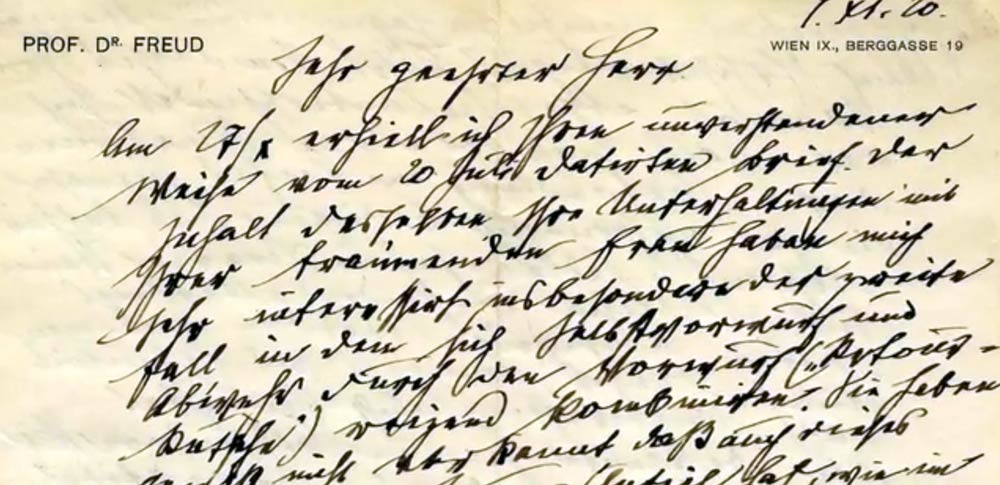 1. XI. 20.
PROF. DR. FREUD
WIEN IX., BERGGASSE 19
Sehr geehrter Herr
Am 27/X erhielt ich Ihren unverstandener
Weise vom 20 Juli datirten Brief. Der
Inhalt desselben Ihre Unterhaltungen mit
Ihrer träumenden Frau haben mich
sehr interessirt insbesondere der zweite
Fall in dem sich Selbstvorwurf und
Abwehr durch den Vorwurf („Retour-
kutsche") reizend kombiniren. Sie haben
nicht verkannt daß auch dieses
hat, wie im